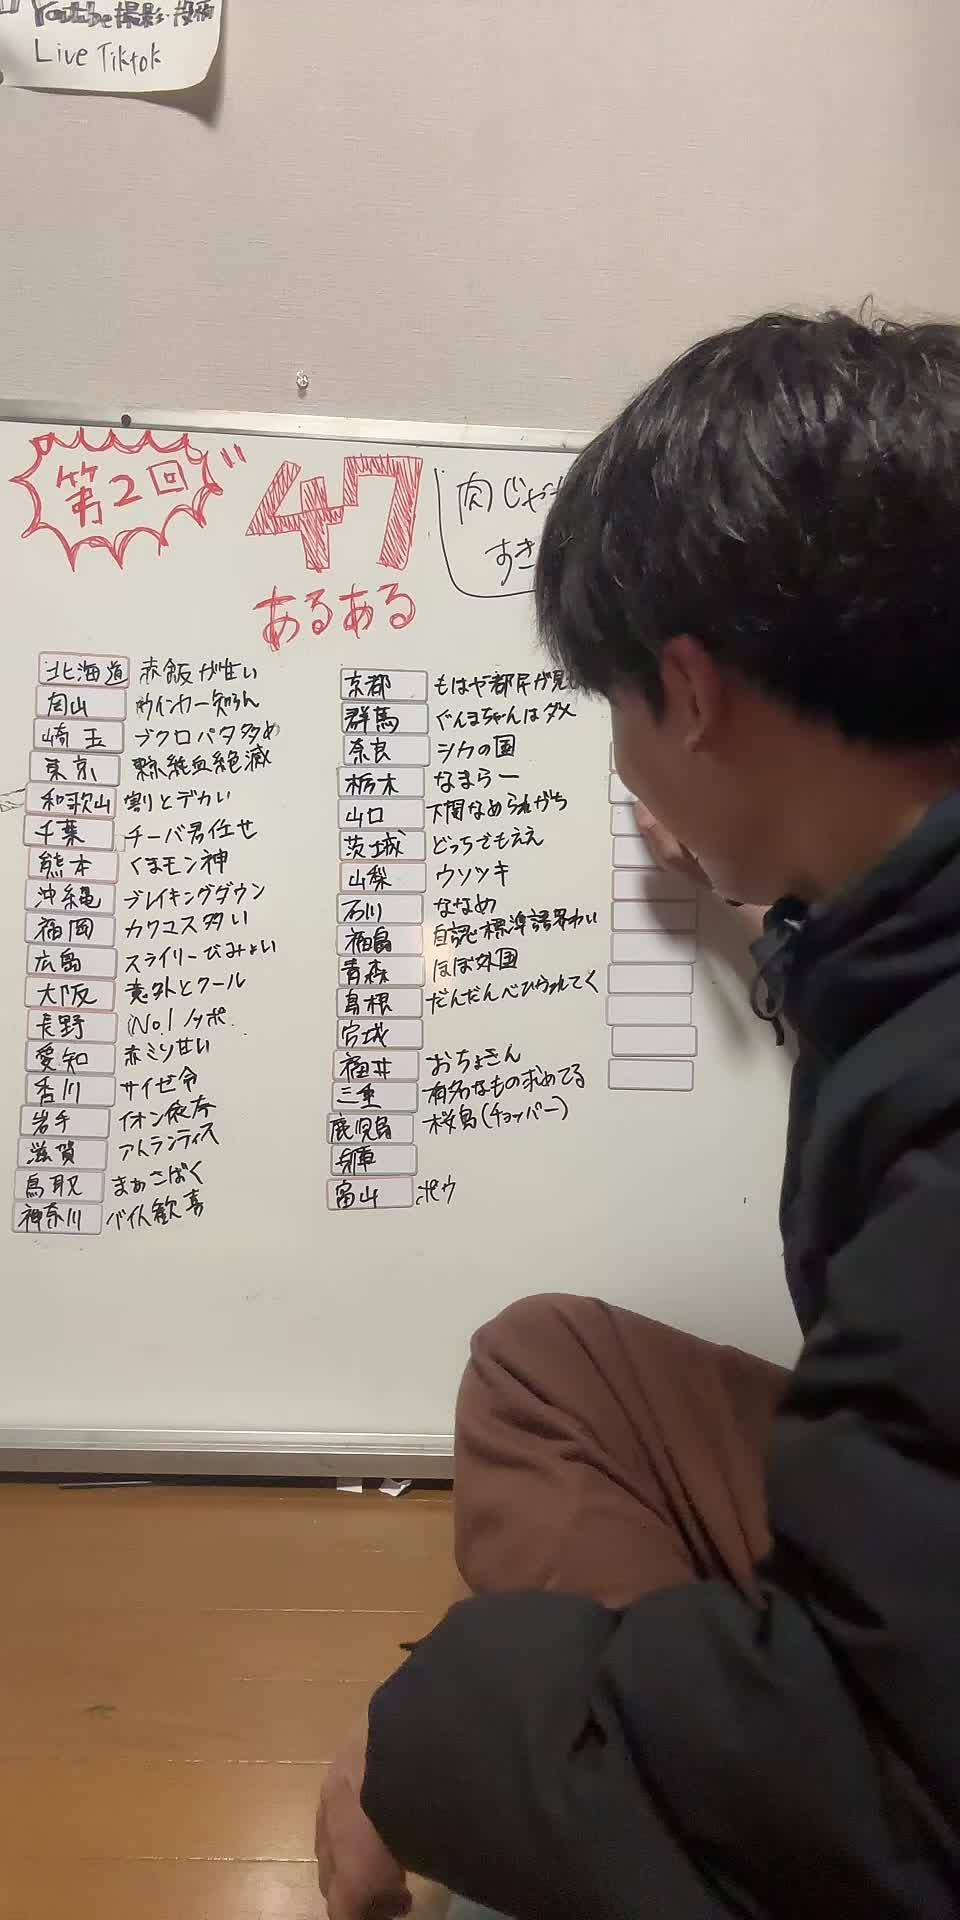 Youtube撮影・投稿
Live Tiktok
第2回
47
あるある
肉じゃ
すき
北海道 赤飯が甘い
岡山 ウインカー知らん
埼玉 ブクロパタ多め
東京 純血絶滅
和歌山 割とデカい
千葉 チーバ君任せ
熊本 くまモン神
沖縄 ブレイキングダウン
福岡 カワコス多い
広島 スライリーびみょい
大阪 意外とクール
長野 No.1ノッポ
愛知 赤ミソ甘い
香川 サイゼ命
岩手 イオン依存
滋賀 アトランティス
鳥取 まぁさばく
神奈川 バイト歓喜
京都 もはや都民が見
群馬 ぐんまちゃんはダメ
奈良 シカの国
栃木 なまらー
山口 下関なめられがち
茨城 どっちでもええ
山梨 ウソツキ
石川 ななめ
福島 自認標準語界わい
青森 ほぼ外国
島根 だんだんべ
宮城
福井 おちょきん
三重 有名なもの求めてる
鹿児島 桜島(チョッパー)
兵庫
富山 ポウ